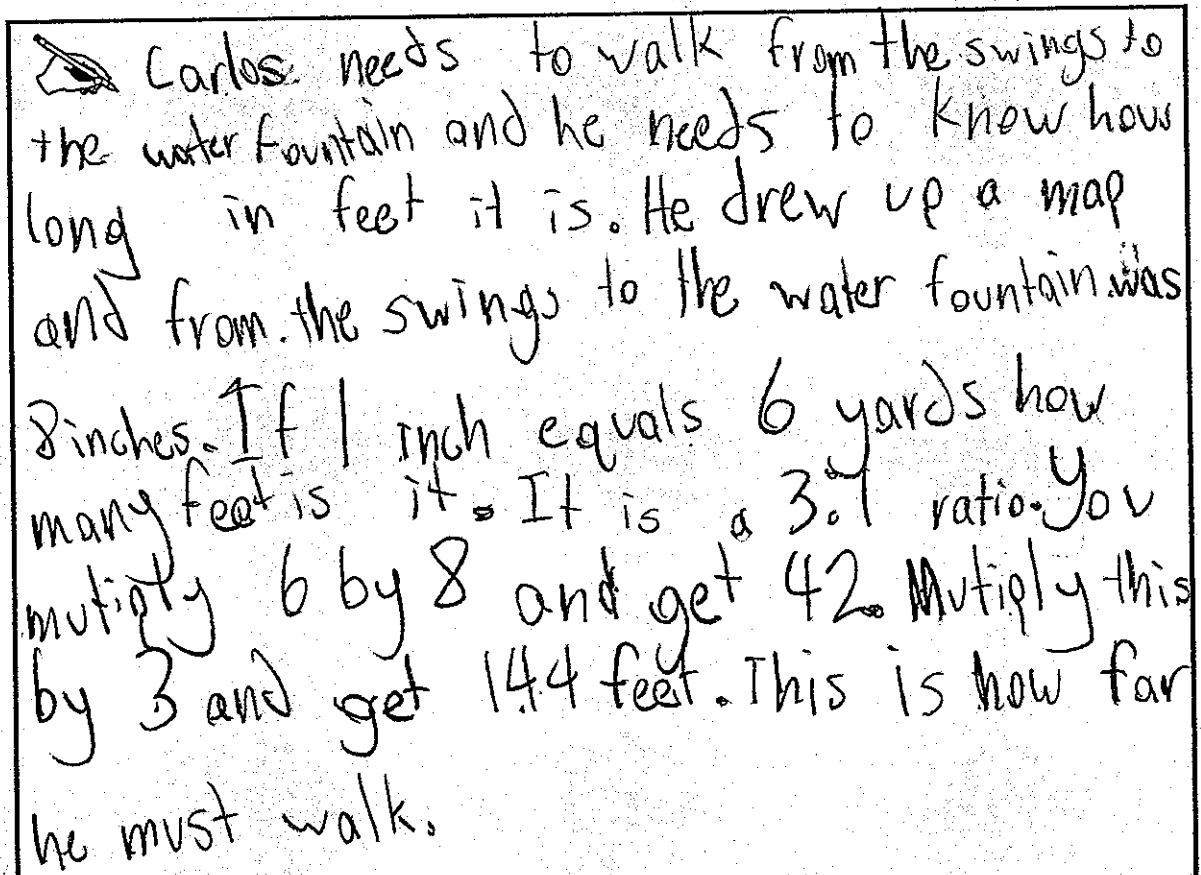 Carlos needs to walk from the swings to
the water fountain and he needs to know how
long in feet it is. He drew up a map
and from the swings to the water fountain was
8 inches. If 1 inch equals 6 yards how
many feet is it. It is a 3:1 ratio. You
mutiply 6 by 8 and get 42. Mutiply this
by 3 and get 144 feet. This is how far
he must walk.